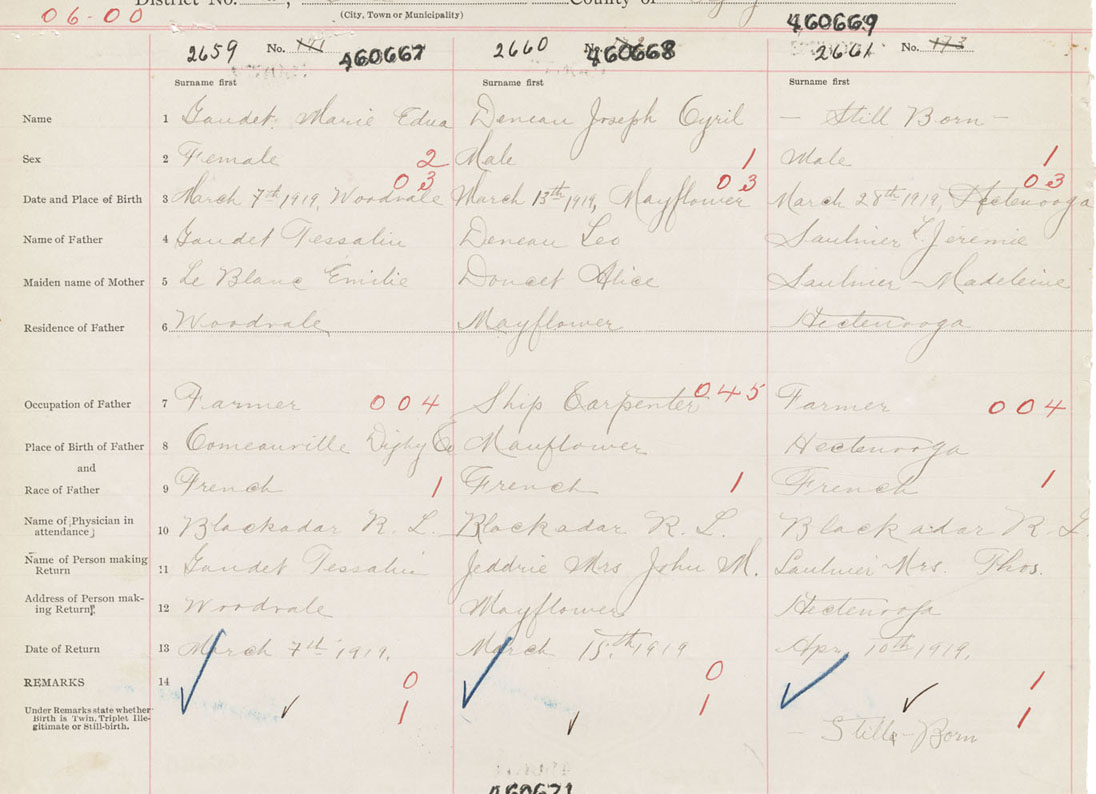 District No. County of
06-00 (City, Town or Municipality)
460669
2659 No. 171 460667 2660 No. 460668 2661 No. 173
Surname first Surname first Surname first
Name 1 Gaudet Marie Edna Deneau Joseph Cyril — Still Born —
Sex 2 Female 2 Male 1 Male 1
03 03 03
Date and Place of Birth 3 March 7th 1919, Woodvale March 13th 1919, Mayflower March 28th 1919, Hectenooga
Name of Father 4 Gaudet Tessalin Deneau Leo Saulnier L. Jeremie
Maiden name of Mother 5 Le Blanc Emilie Doucet Alice Saulnier - Madeleine
Residence of Father 6 Woodvale Mayflower Hectenooga
Occupation of Father 7 Farmer 004 Ship Carpenter 045 Farmer 004
Place of Birth of Father 8 Comeauville Digby Co Mayflower Hectenooga
and
Race of Father 9 French 1 French 1 French 1
Name of Physician in
attendance 10 Blackadar R. L. Blackadar R. L. Blackadar R. L.
Name of Person making
Return 11 Gaudet Tessalin Jeddrie Mrs John M. Saulnier Mrs. Thos.
Address of Person mak-
ing Return 12 Woodvale Mayflower Hectenooga
Date of Return 13 March 7th 1919. March 15th 1919 Apr. 10th 1919.
REMARKS 14 0 0 1
Under Remarks state whether
Birth is Twin, Triplet Ille-
gitimate or Still-birth. 1 1 1
— Still - Born
460671